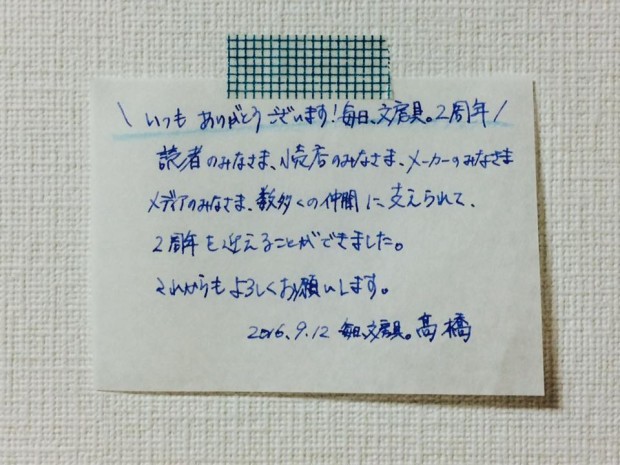 \ いつも ありがとうございます！毎日、文房具。2周年 /
読者のみなさま、小売店のみなさま、メーカーのみなさま
メディアのみなさま、数多くの仲間に支えられて、
2周年を迎えることができました。
これからもよろしくお願いします。
2016.9.12 毎日、文房具。高橋